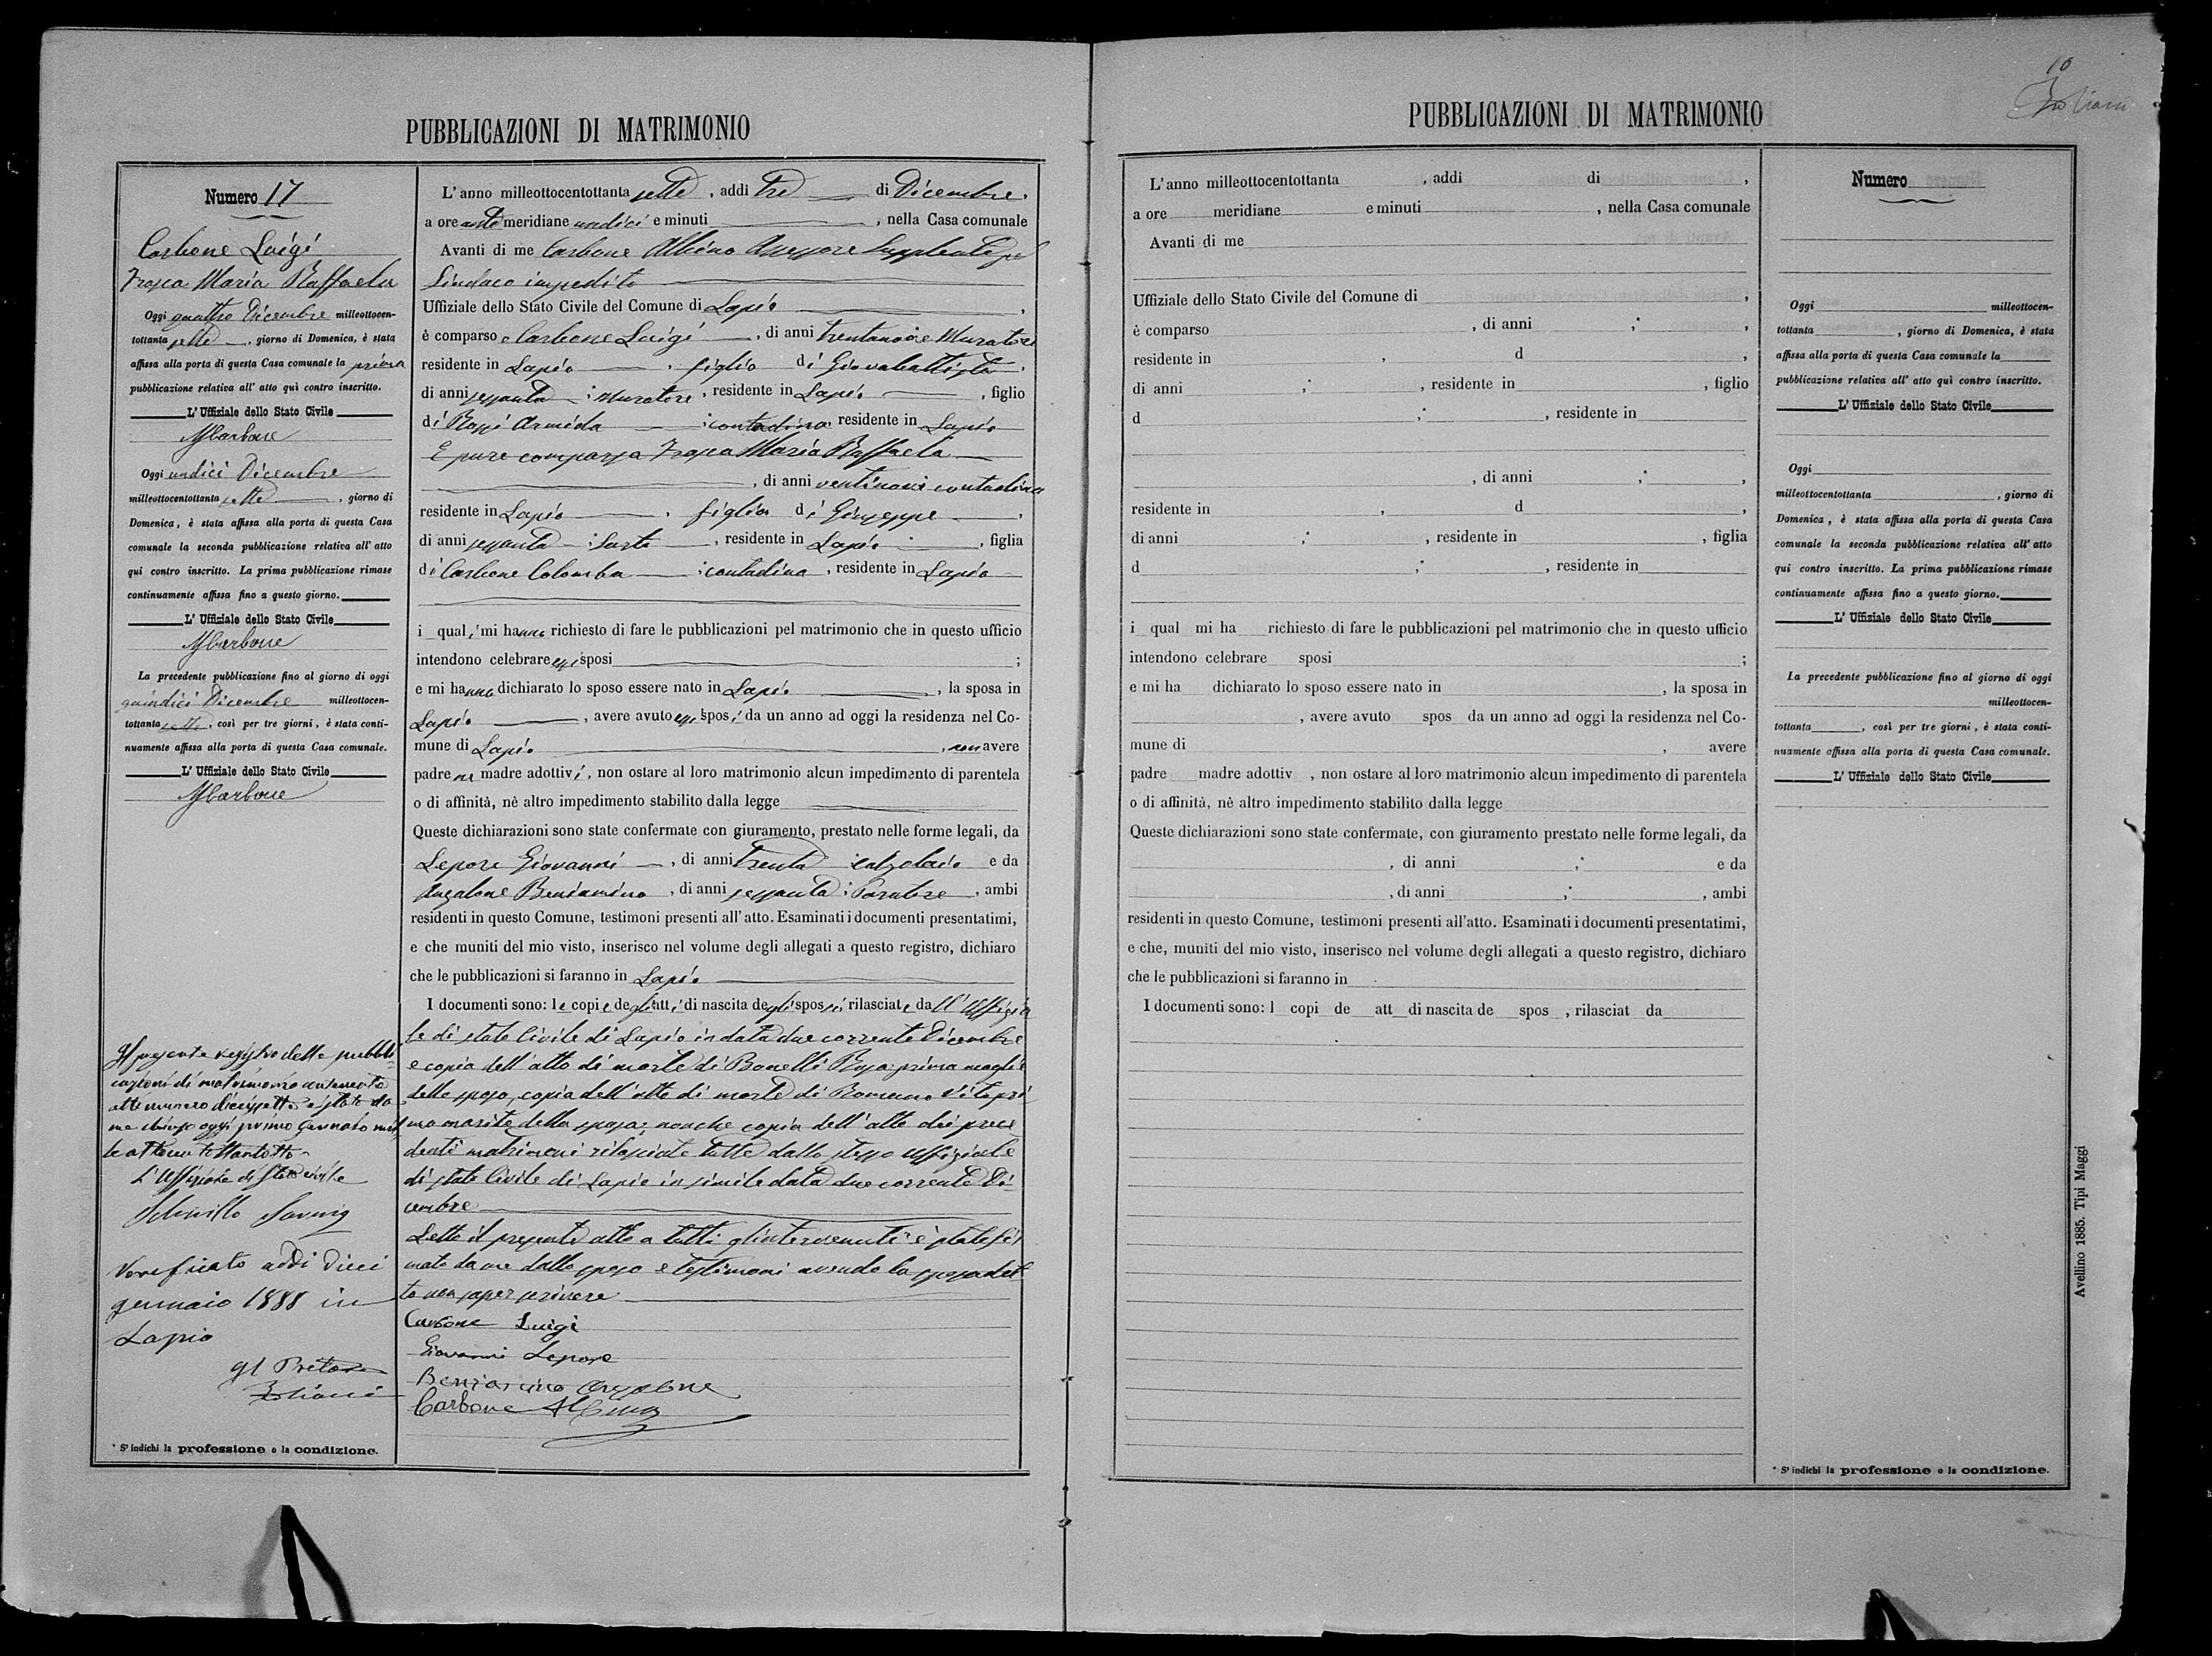 PUBBLICAZIONI DI MATRIMONIO
Numero 17
Carbone Luigi
Frasca Maria Raffaela
Oggi quattro Dicembre milleottocen-
tottanta sette, giorno di Domenica, è stata
affissa alla porta di questa Casa comunale la prima
pubblicazione relativa all' atto quì contro inscritto.
L' Uffiziale dello Stato Civile
ACarbone
Oggi undici Dicembre
milleottocentottanta sette, giorno di
Domenica, è stata affissa alla porta di questa Casa
comunale la seconda pubblicazione relativa all' atto
qui contro inscritto. La prima pubblicazione rimase
continuamente affissa fino a questo giorno.
L' Uffiziale dello Stato Civile
ACarbone
La precedente pubblicazione fino al giorno di oggi
quindici Dicembre milleottocen-
tottanta sette, così per tre giorni, è stata conti-
nuamente affissa alla porta di questa Casa comunale.
L' Uffiziale dello Stato Civile
ACarbone
Il presente registro delle pubbli-
cazioni di matrimonio contenente
atti numero diciessette è stato da
me chiuso oggi primo Gennaio mil
le ottocentottantotto
L'Uffiziale di Stato civile
Verificato addì dieci
gennaio 1888 in
Lapio
Il Pretore
* S' indichi la professione o la condizione.
L' anno milleottocentottanta sette, addi tre di Dicembre,
a ore anti meridiane undici e minuti , nella Casa comunale
Avanti di me Carbone Albino Assessore Supplente pel
Sindaco impedito
Uffiziale dello Stato Civile del Comune di Lapio,
è comparso Carbone Luigi, di anni trentanove Muratore
residente in Lapio, figlio di Giovabattista,
di anni sessanta; muratore, residente in Lapio, figlio
di Rossi Armida; contadina residente in Lapio
E pure comparsa Frasca Maria Raffaela
, di anni ventinove contadina
residente in Lapio, figlia di Giuseppe,
di anni sessanta; Sarto, residente in Lapio, figlia
di Carbone Colomba; contadina, residente in Lapio
i quali mi hanno richiesto di fare le pubblicazioni pel matrimonio che in questo ufficio
intendono celebrare essi sposi ;
e mi hanno dichiarato lo sposo essere nato in Lapio, la sposa in
Lapio, avere avuto essi sposi da un anno ad oggi la residenza nel Co-
mune di Lapio, non avere
padre ne madre adottivi, non ostare al loro matrimonio alcun impedimento di parentela
o di affinità, nè altro impedimento stabilito dalla legge
Queste dichiarazioni sono state confermate con giuramento, prestato nelle forme legali, da
Lepore Giovanni, di anni trenta calzolaio e da
Angalone Beniamino, di anni sessanta; , ambi
residenti in questo Comune, testimoni presenti all' atto. Esaminati i documenti presentatimi,
e che muniti del mio visto, inserisco nel volume degli allegati a questo registro, dichiaro
che le pubblicazioni si faranno in Lapio
I documenti sono: le copie degli atti di nascita degli sposi rilasciate dall'Uffizia
le di stato Civile di Lapio in data due corrente Dicembre
e copia dell'atto di morte di Bonelli Rosa prima moglie
dello sposo, copia dell'atto di morte di Romano Vito pri
mo marito della sposa; nonche copia dell'atto dei prece
denti matrimoni rilasciate tutte dallo stesso Uffiziale
di stato Civile di Lapio in simile data due corrente Di-
cembre
Letto il presente atto a tutti gl'intervenuti è stato fir
mato da me dallo sposo e testimoni avendo la sposa det
to non saper scrivere
Carbone Luigi
Giovanni Lepore
Beniamino Angalone
Carbone Albino
10
PUBBLICAZIONI DI MATRIMONIO
L' anno milleottocentottanta , addi di ,
a ore meridiane e minuti , nella Casa comunale
Avanti di me
Uffiziale dello Stato Civile del Comune di ,
è comparso , di anni ; ,
residente in , d ,
di anni ; , residente in , figlio
d ; , residente in
, di anni ; ,
residente in , d ,
di anni ; , residente in , figlia
d ; , residente in
i qual mi ha richiesto di fare le pubblicazioni pel matrimonio che in questo ufficio
intendono celebrare sposi ;
e mi ha dichiarato lo sposo essere nato in , la sposa in
, avere avuto spos da un anno ad oggi la residenza nel Co-
mune di , avere
padre madre adottiv , non ostare al loro matrimonio alcun impedimento di parentela
o di affinità, nè altro impedimento stabilito dalla legge
Queste dichiarazioni sono state confermate, con giuramento prestato nelle forme legali, da
, di anni ; e da
, di anni ; , ambi
residenti in questo Comune, testimoni presenti all'atto. Esaminati i documenti presentatimi,
e che, muniti del mio visto, inserisco nel volume degli allegati a questo registro, dichiaro
che le pubblicazioni si faranno in
I documenti sono: l copi de att di nascita de spos , rilasciat da
Numero
Oggi milleottocen-
tottanta , giorno di Domenica, è stata
affissa alla porta di questa Casa comunale la
pubblicazione relativa all' atto quì contro inscritto.
L' Uffiziale dello Stato Civile
Oggi
milleottocentottanta , giorno di
Domenica, è stata affissa alla porta di questa Casa
comunale la seconda pubblicazione relativa all' atto
qui contro inscritto. La prima pubblicazione rimase
continuamente affissa fino a questo giorno.
L' Uffiziale dello Stato Civile
La precedente pubblicazione fino al giorno di oggi
milleottocen-
tottanta , così per tre giorni, è stata conti-
nuamente affissa alla porta di questa Casa comunale.
L' Uffiziale dello Stato Civile
* S' indichi la professione o la condizione.
Avellino 1885. Tipi Maggi